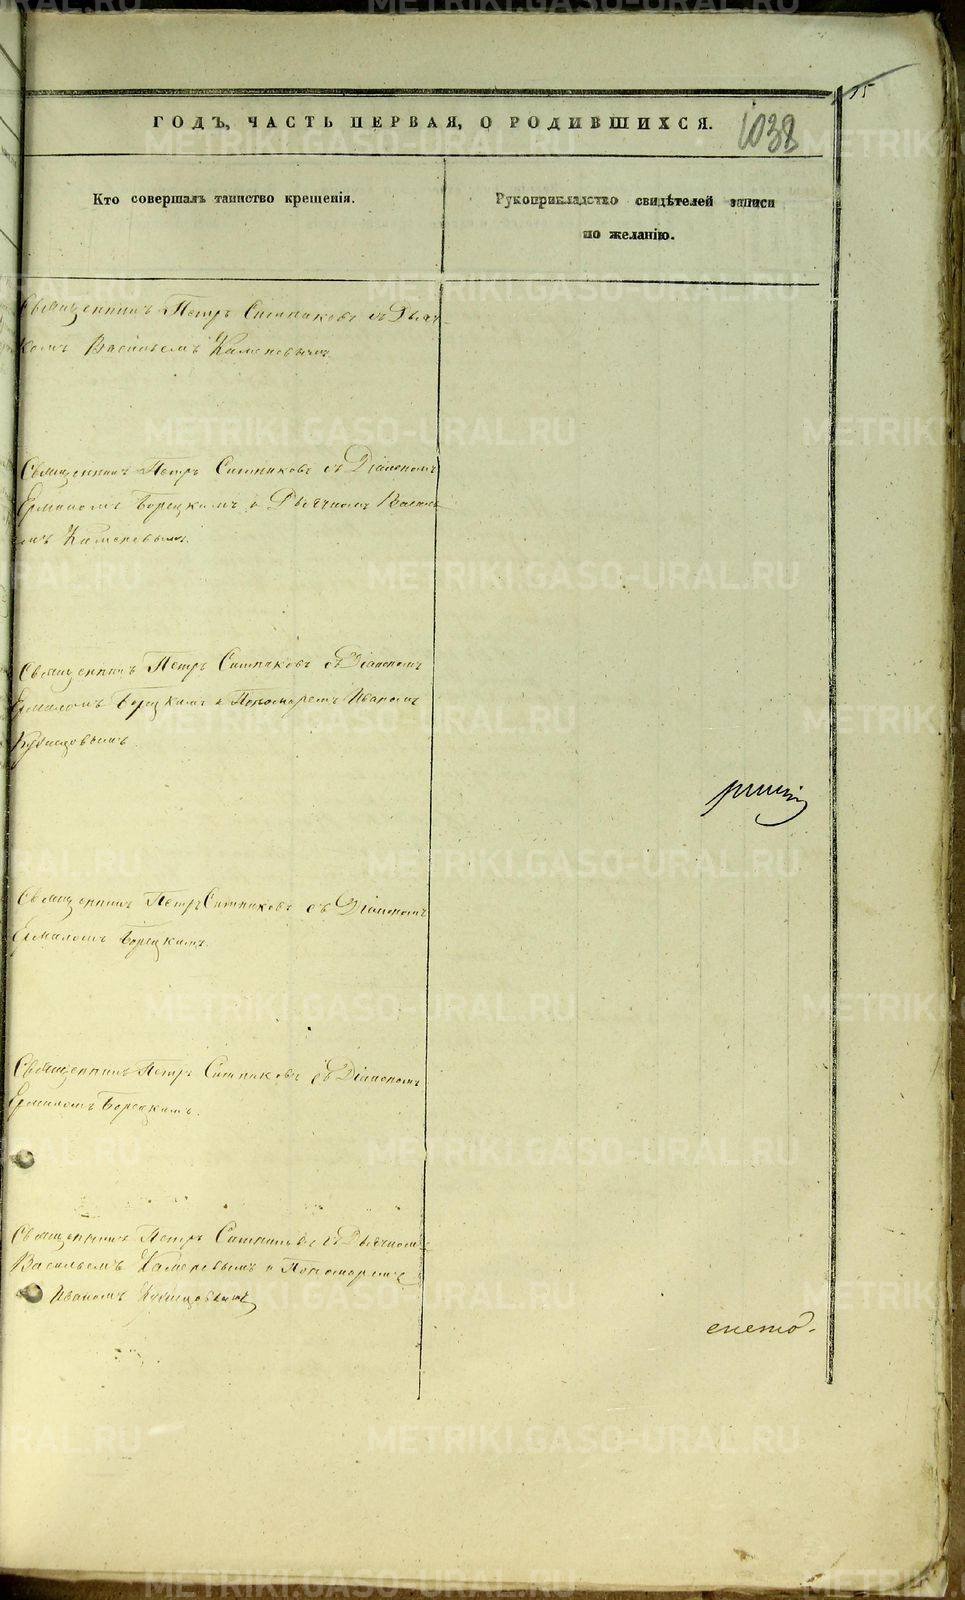 15
ГОДЪ, ЧАСТЬ ПЕРВАЯ, О РОДИВШИХСЯ.
1038
Кто совершалъ таинство крещенія.
Рукоприкладство свидѣтелей записи
по желанію.
Священникъ Петръ Ситниковъ съ Дьяч-
комъ Васильемъ
Священникъ Петръ Ситниковъ съ Діакономъ
Ермиломъ Борецкимъ и Дьячкомъ Василь-
емъ
Священникъ Петръ Ситниковъ съ Діакономъ
Ермиломъ Борецкимъ и Пономаремъ Иваномъ
Кузнецовымъ.
Священникъ Петръ Ситниковъ съ Діакономъ
Ермиломъ Борецкимъ.
Священникъ Петръ Ситниковъ съ Діакономъ
Ермиломъ Борецкимъ.
Священникъ Петръ Ситниковъ съ Дьячкомъ
Васильемъ и Пономаремъ
Иваномъ Кузнецовымъ
METRIKI.GASO-URAL.RU